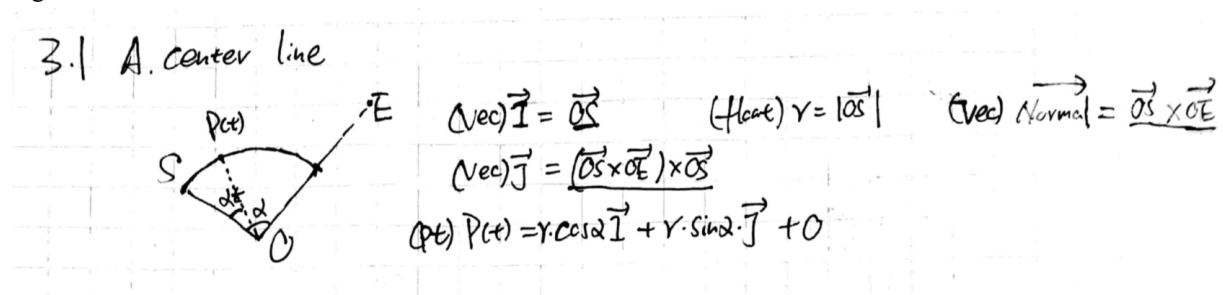 3.1 A. center line
(Vec) I⃗ = O⃗S⃗ (float) r = |O⃗S⃗| (Vec) Normal⃗ = O⃗S⃗ × O⃗E⃗
(Vec) J⃗ = (O⃗S⃗ × O⃗E⃗) × O⃗S⃗
(pt) P(t) = r·cosα I⃗ + r·sinα·J⃗ + O
E
P(t)
S
α
O